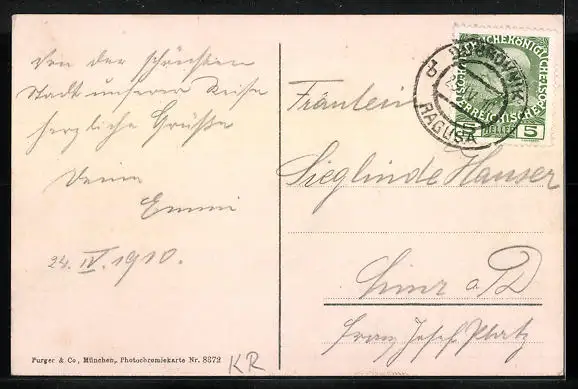 Von der schönsten
Stadt unserer Reise
herzliche Grüße
Deine
Emmi
24. IV. 1910.
Purger & Co., München, Photochromiekarte Nr. 8372
KR
DUBROVNIK
RAGUSA
b
5 HELLER 5
Fräulein
Sieglinde Hauser
Linz a/D
Franz Josef Platz